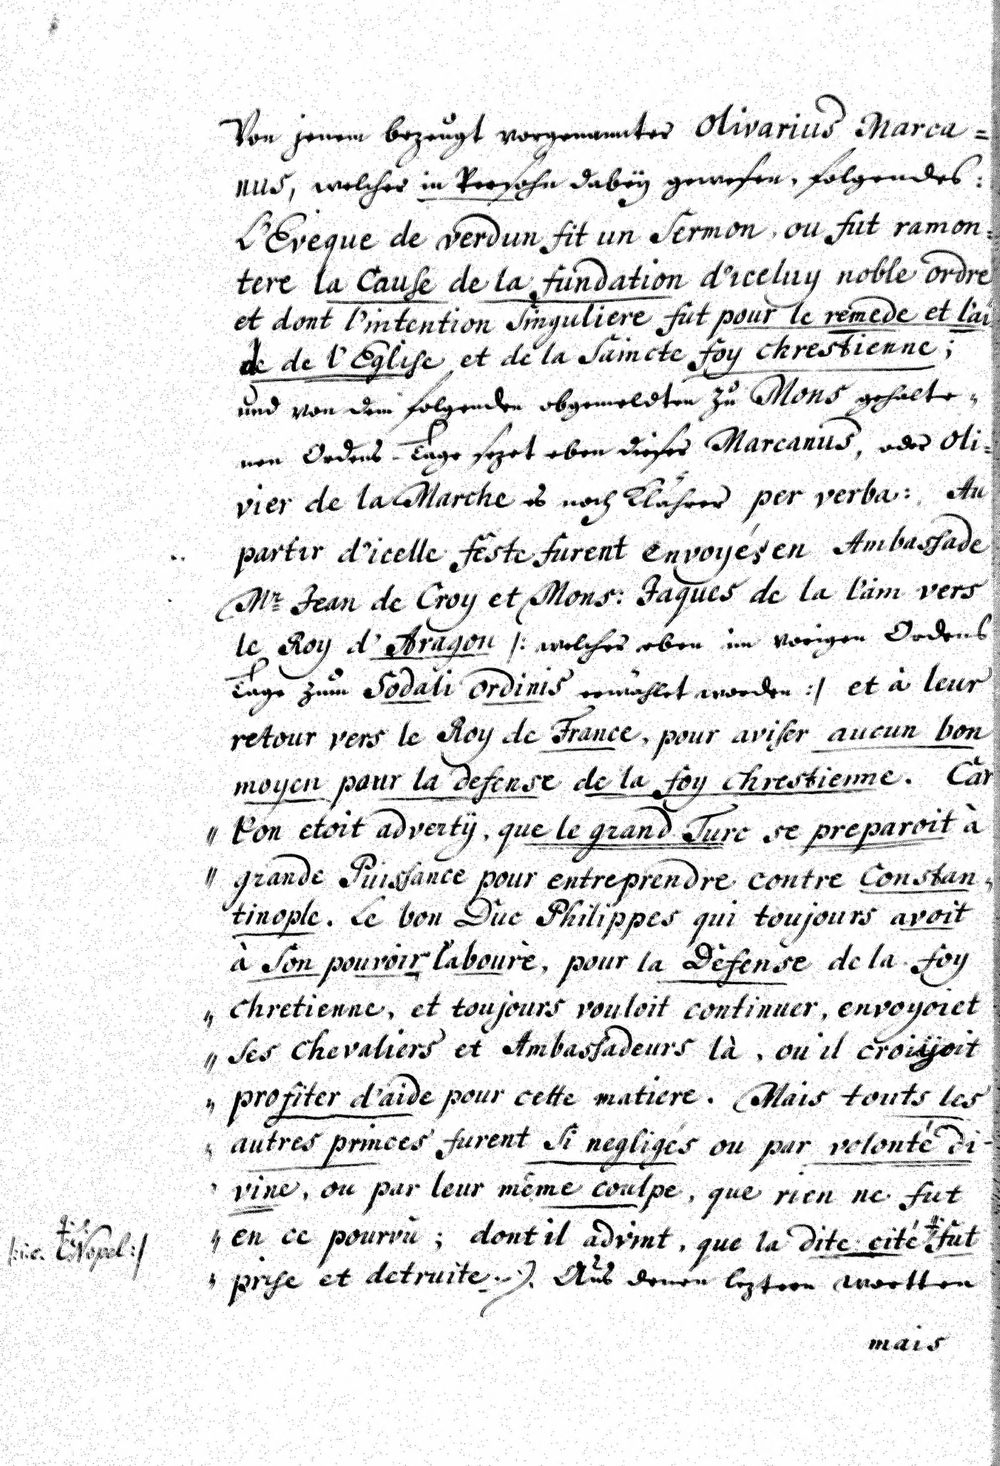 Von jenem bezeugt vorgenannter Olivarius Marca=
nus, welcher in Persohn dabeÿ gewesen, folgendes:
L'Eveque de verdun fit un Sermon, ou fut ramon=
tere la Cause de la fundation d'iceluy noble ordre
et dont l'intention Singuliere fut pour le remede et l'ai
de de l'Eglise et de la Saincte foy chrestienne;
und von dem folgenden obgemeldten zu Mons gehalte=
nen Ordens-Tage sezet eben dieser Marcanus, oder Oli=
vier de la Marche es noch Klährer per verba: Au
partir d'icelle feste furent envoyés en Ambassade
Mr. Jean de Croy et Mons: Jaques de la l'aim vers
le Roy d'Aragon /: welcher eben im vorigen Ordens
Tage zum Sodali ordinis erwählet worden :/ et à leur
retour vers le Roy de France, pour aviser aucun bon
moyen pour la defense de la foy chrestienne. Car
" l'on etoit advertÿ, que le grand Turc se preparoit à
" grande Puissance pour entreprendre contre Constan=
tinople. Le bon Duc Philippes qui toujours avoit
à Son pouvoir labourè, pour la Défense de la foy
" chretienne, et toujours vouloit continuer, envoyoiet
" Ses Chevaliers et Ambassadeurs là, ou il croiÿoit
" profiter d'aide pour cette matiere. Mais touts les
" autres princes furent Si negligés ou par volonté di-
" vine, ou par leur même coulpe, que rien ne fut
" en ce pourvû; dont il advint, que la dite cité # fut
" prise et detruite. Aus denen leztern wortten
# /: sic. CNopel :/
mais